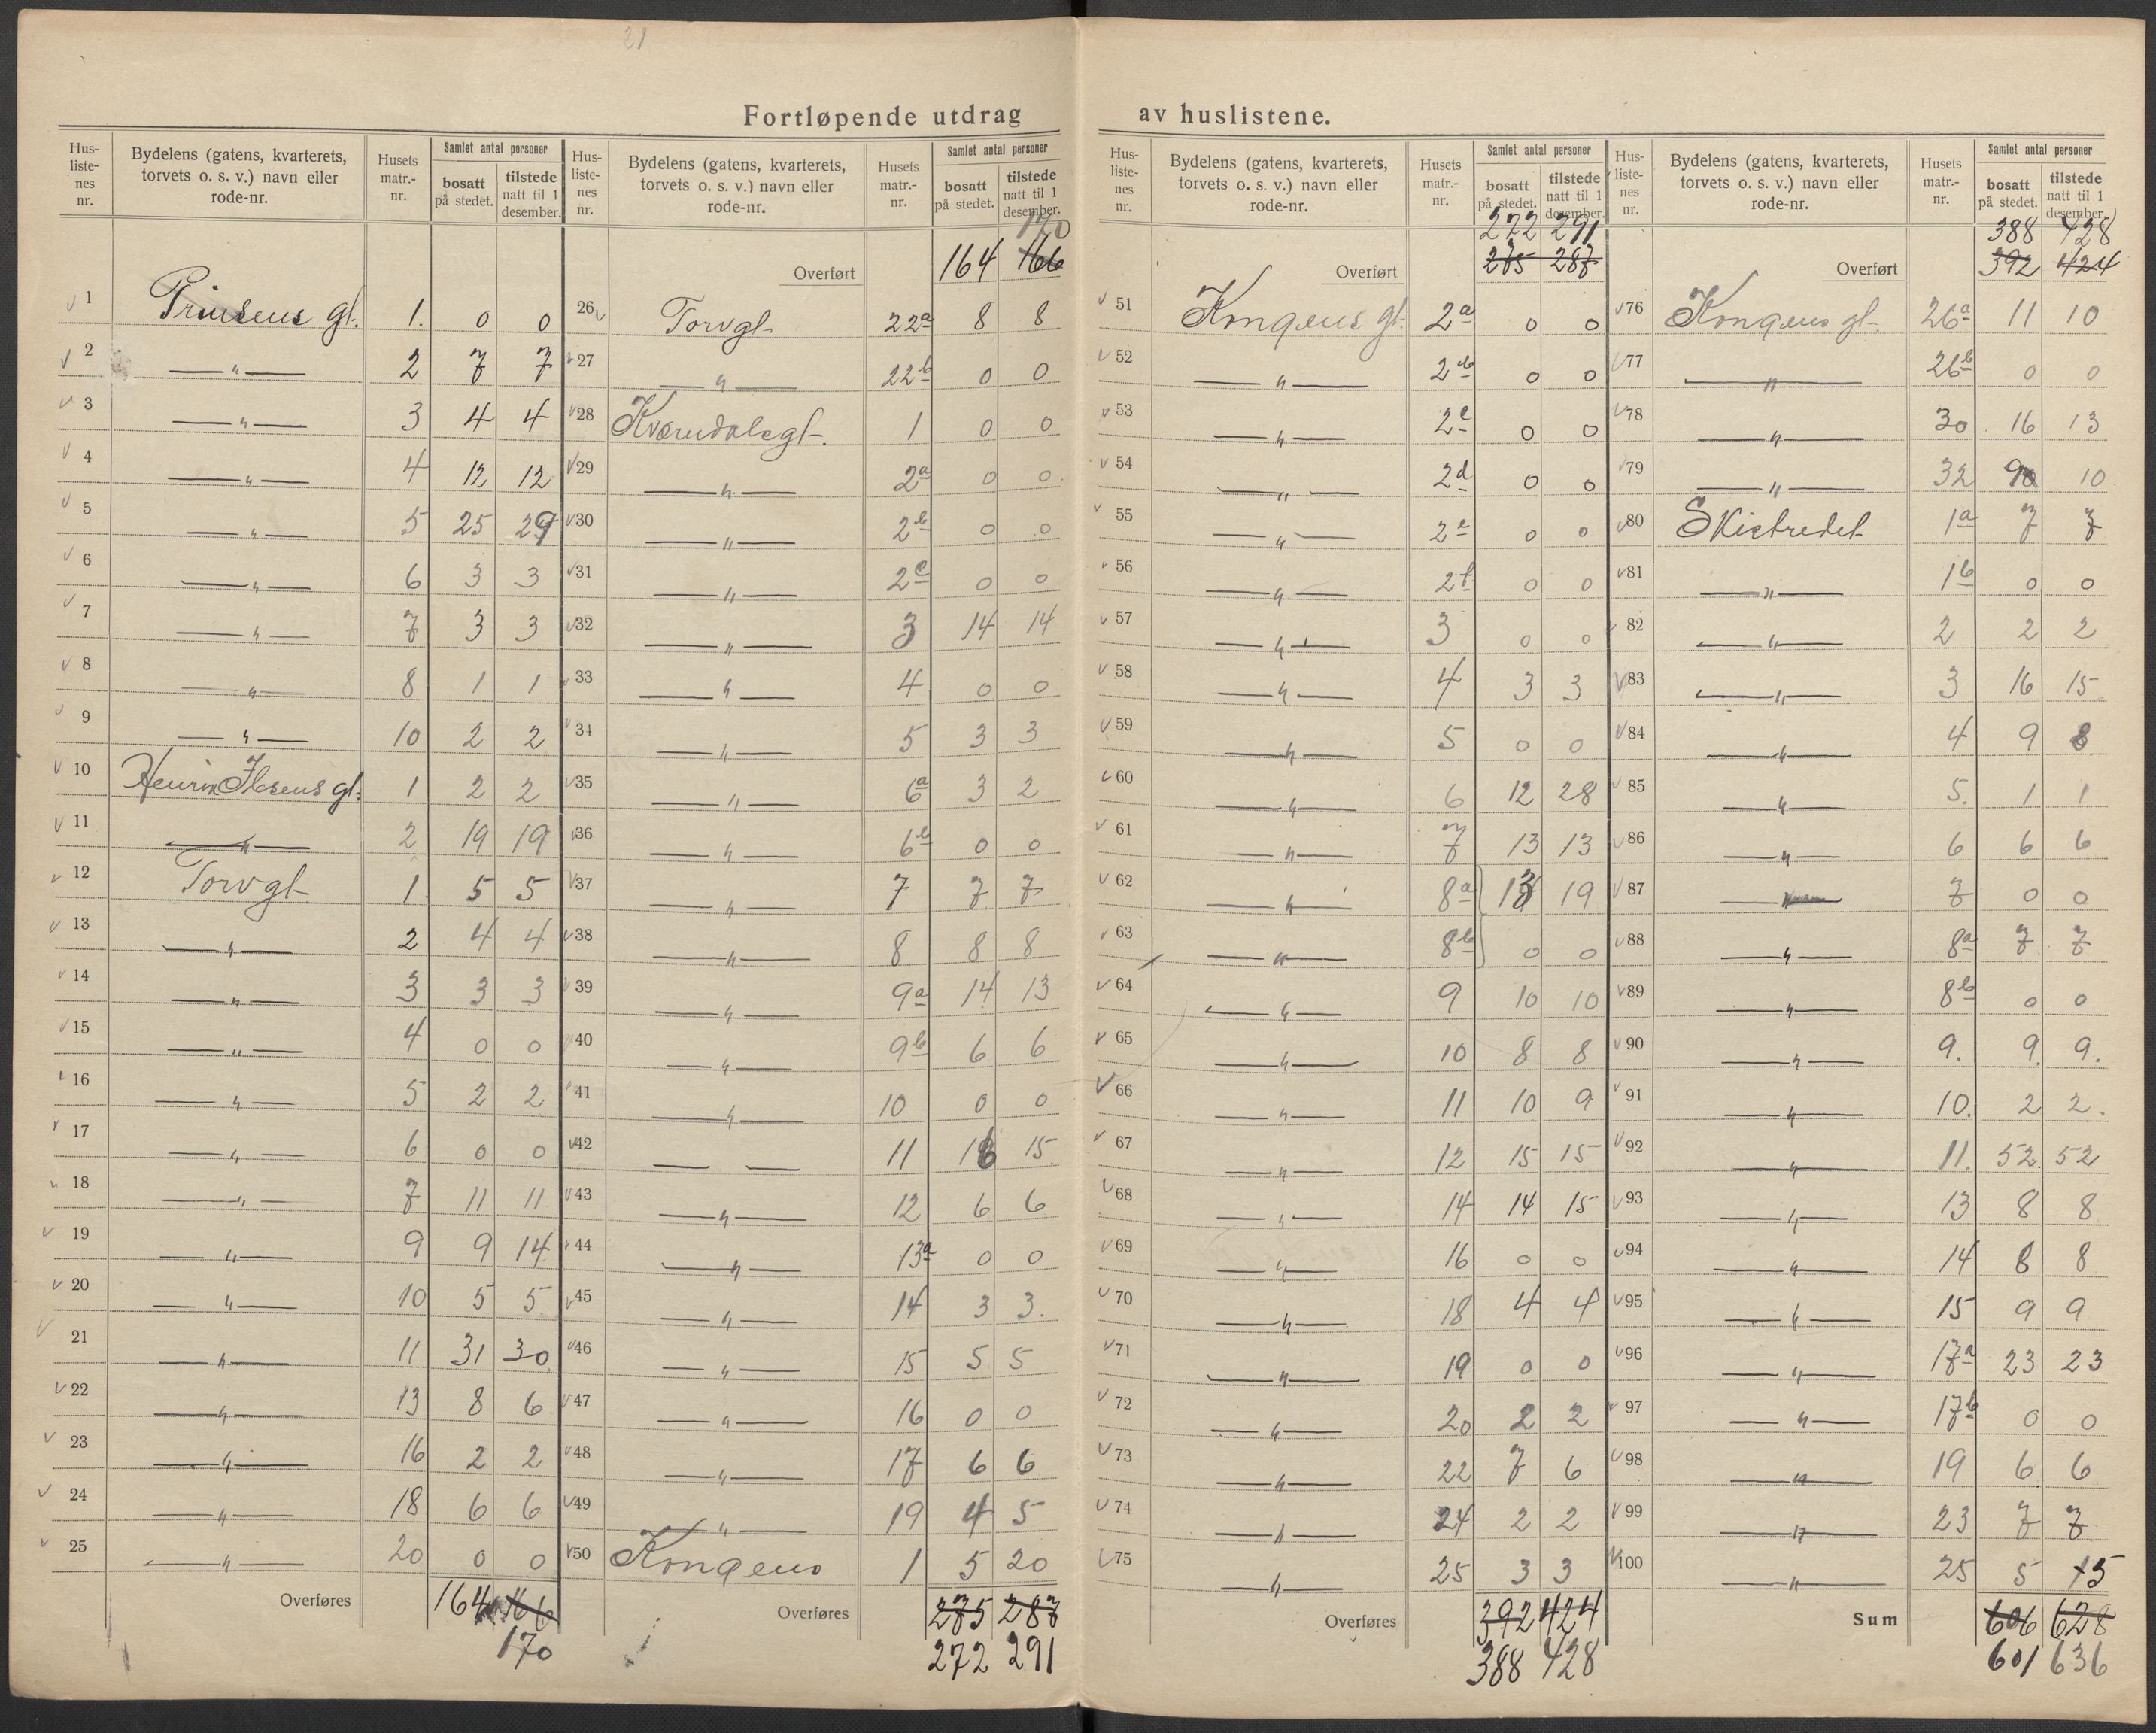 21
Fortløpende utdrag av huslistene.
Hus-liste-nes nr. | Bydelens (gatens, kvarterets, torvets o. s. v.) navn eller rode-nr. | Husets matr.-nr. | Samlet antal personer bosatt på stedet. | tilstede natt til 1 desember.
1 Prinsens gt. 1. 0 0
2 —"— 2 7 7
3 —"— 3 4 4
4 —"— 4 12 12
5 —"— 5 25 29
6 —"— 6 3 3
7 —"— 7 3 3
8 —"— 8 1 1
9 —"— 10 2 2
10 Henrik Ibsens gt. 1 2 2
11 —"— 2 19 19
12 Torvgt 1 5 5
13 —"— 2 4 4
14 —"— 3 3 3
15 —"— 4 0 0
16 —"— 5 2 2
17 —"— 6 0 0
18 —"— 7 11 11
19 —"— 9 9 14
20 —"— 10 5 5
21 —"— 11 31 30
22 —"— 13 8 6
23 —"— 16 2 2
24 —"— 18 6 6
25 —"— 20 0 0
Overføres 164 166
170
Hus-liste-nes nr. | Bydelens (gatens, kvarterets, torvets o. s. v.) navn eller rode-nr. | Husets matr.-nr. | Samlet antal personer bosatt på stedet. | tilstede natt til 1 desember.
170
Overført 164 166
26 Torvgt 22a 8 8
27 —"— 22b 0 0
28 Kværndalsgt. 1 0 0
29 —"— 2a 0 0
30 —"— 2b 0 0
31 —"— 2c 0 0
32 —"— 3 14 14
33 —"— 4 0 0
34 —"— 5 3 3
35 —"— 6a 3 2
36 —"— 6b 0 0
37 —"— 7 7 7
38 —"— 8 8 8
39 —"— 9a 14 13
40 —"— 9b 6 6
41 —"— 10 0 0
42 — — 11 16 15
43 —"— 12 6 6
44 —"— 13a 0 0
45 —"— 14 3 3.
46 —"— 15 5 5
47 —"— 16 0 0
48 —"— 17 6 6
49 —"— 19 4 5
50 Kongens 1 5 20
Overføres 275 287
272 291
Hus-liste-nes nr. | Bydelens (gatens, kvarterets, torvets o. s. v.) navn eller rode-nr. | Husets matr.-nr. | Samlet antal personer bosatt på stedet. | tilstede natt til 1 desember.
272 291
Overført 275 287
51 Kongens gt. 2a 0 0
52 —"— 2b 0 0
53 —"— 2c 0 0
54 —"— 2d 0 0
55 —"— 2e 0 0
56 —"— 2f 0 0
57 —"— 3 0 0
58 —"— 4 3 3
59 —"— 5 0 0
60 —"— 6 12 28
61 —"— 7 13 13
62 —"— 8a 13 19
63 —"— 8b 0 0
64 —"— 9 10 10
65 —"— 10 8 8
66 —"— 11 10 9
67 —"— 12 15 15
68 —"— 14 14 15
69 —"— 16 0 0
70 —"— 18 4 4
71 —"— 19 0 0
72 —"— 20 2 2
73 —"— 22 7 6
74 —"— 24 2 2
75 —"— 25 3 3
Overføres 392 424
388 428
Hus-liste-nes nr. | Bydelens (gatens, kvarterets, torvets o. s. v.) navn eller rode-nr. | Husets matr.-nr. | Samlet antal personer bosatt på stedet. | tilstede natt til 1 desember.
388 428
Overført 392 424
76 Kongens gt. 26a 11 10
77 —"— 26b 0 0
78 —"— 30 16 13
79 —"— 32 10
80 Skistredet 1a 7 7
81 —"— 1b 0 0
82 —"— 2 2 2
83 —"— 3 16 15
84 —"— 4 9 8
85 —"— 5. 1 1
86 —"— 6 6 6
87 —"— 7 0 0
88 —"— 8a 7 7
89 —"— 8b 0 0
90 —"— 9. 9. 9.
91 —"— 10. 2 2.
92 —"— 11. 52. 52
93 —"— 13 8 8
94 —"— 14 8 8
95 —"— 15 9 9
96 —"— 17a 23 23
97 —"— 17b 0 0
98 —"— 19 6 6
99 —"— 23 7 7
100 —"— 25 5 15
Sum 606 628
601 636